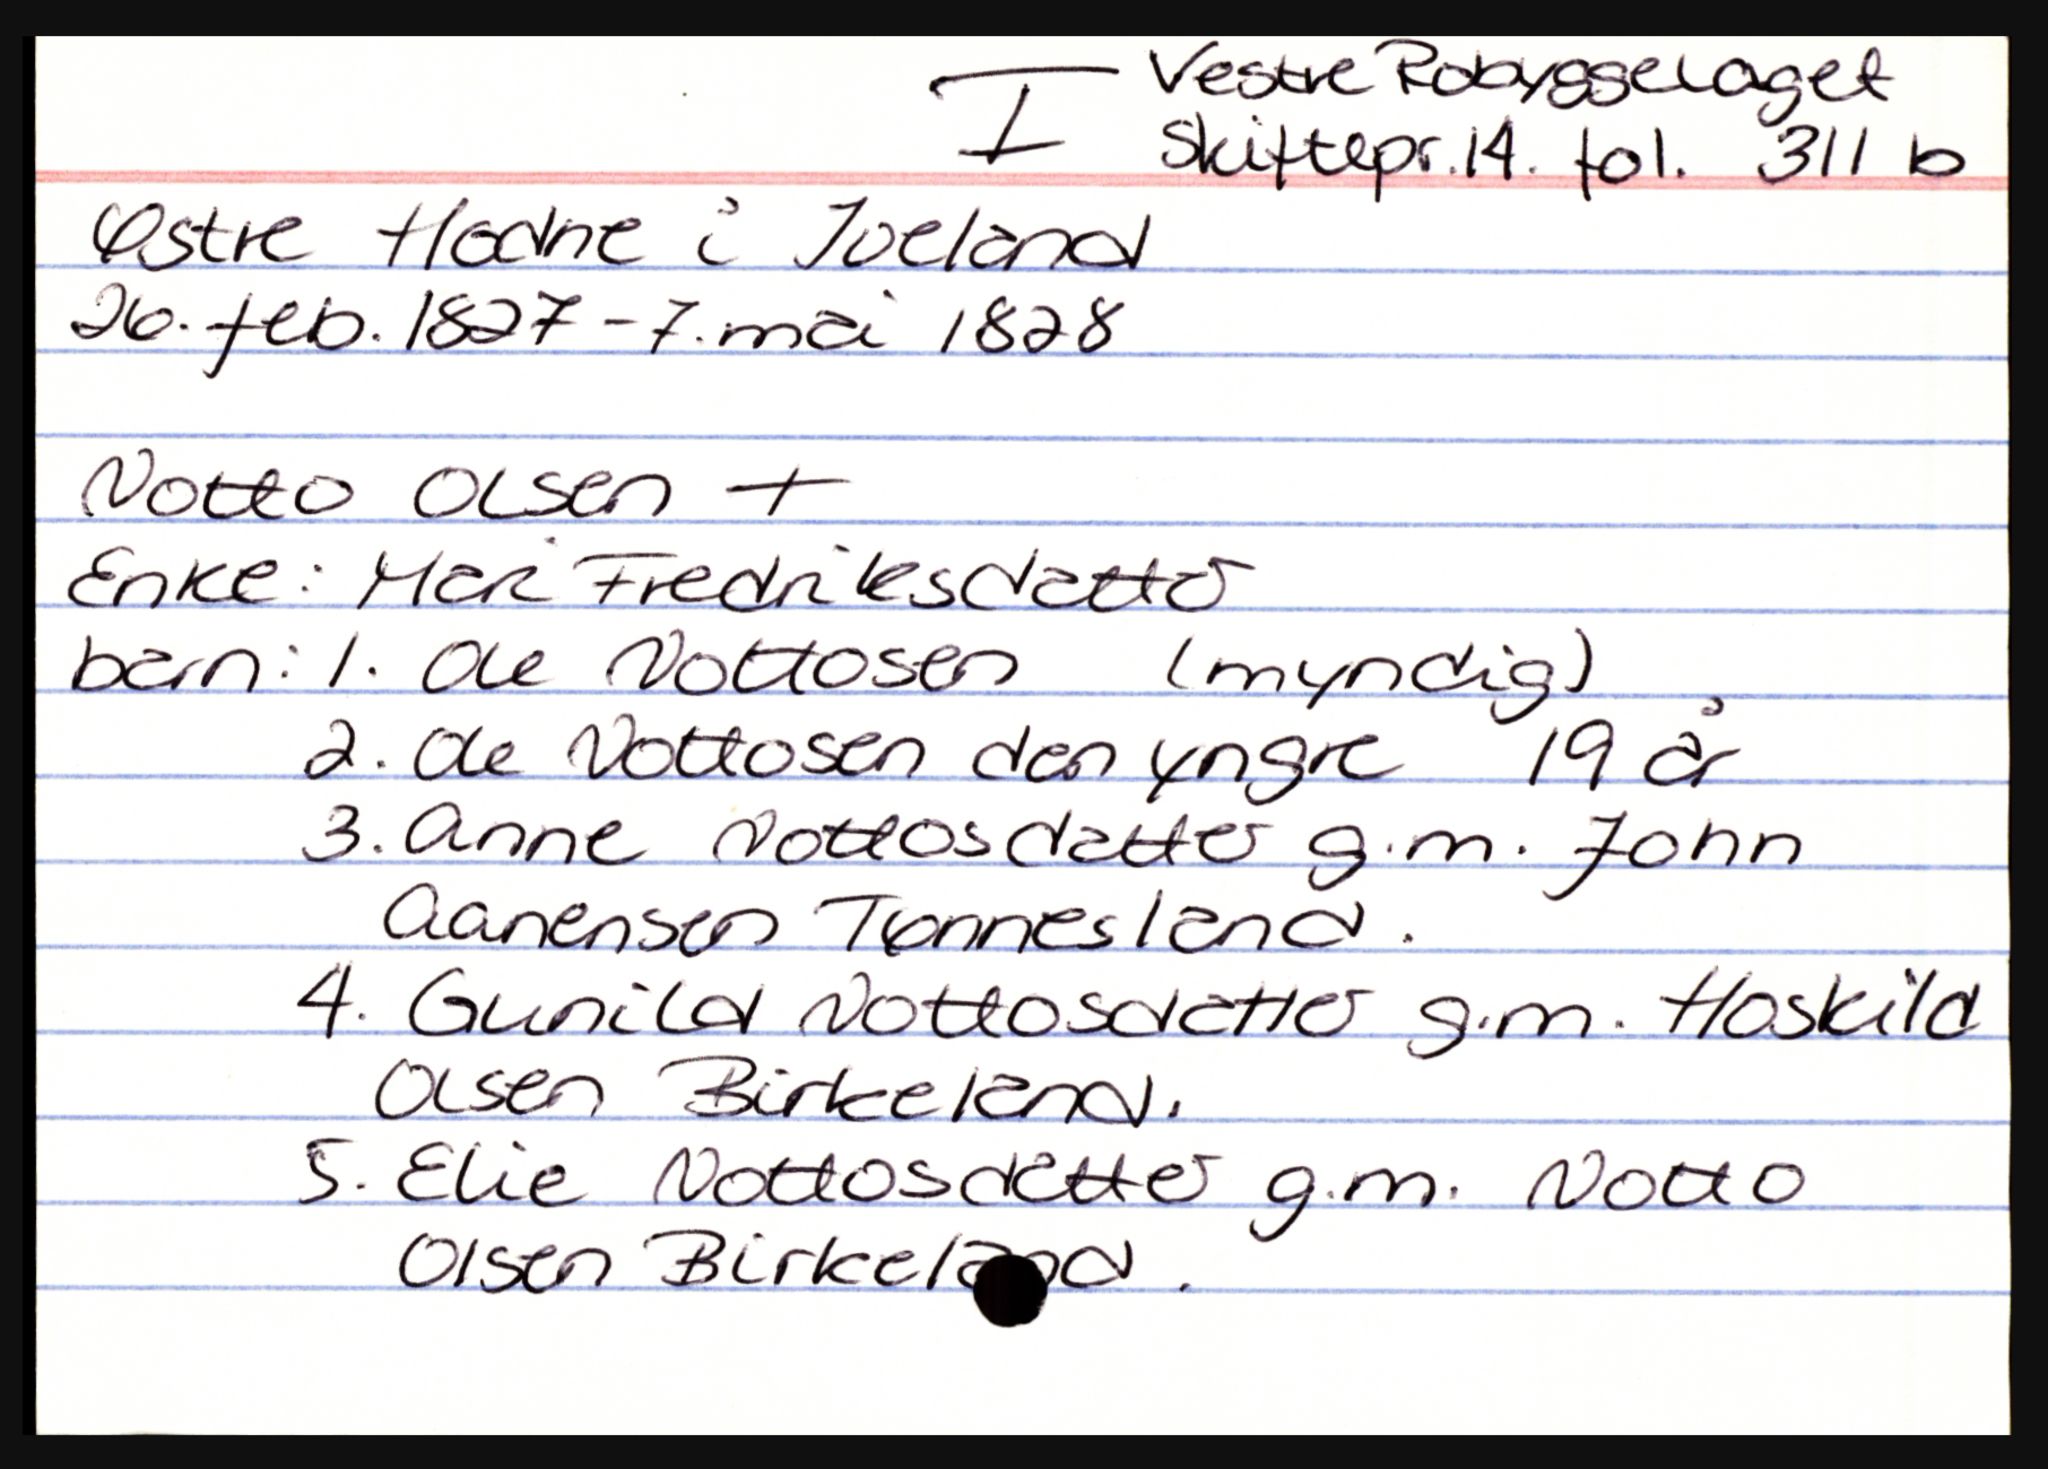 I Vestre Robyggelaget
Skiftepr. 14. fol. 311 b
Østre Hodne i Iveland
26. feb. 1827 - 7. mai 1828
Notto Olsen +
Enke: Mari Fredriksdatter
barn: 1. Ole Nottosen (myndig)
2. Ole Nottosen den yngre 19 år
3. Anne Nottosdatter g.m. John
Aanensen Tønnesland.
4. Gunild Nottosdatter g.m. Hoskild
Olsen Birkeland.
5. Elie Nottosdatter g.m. Notto
Olsen Birkeland.